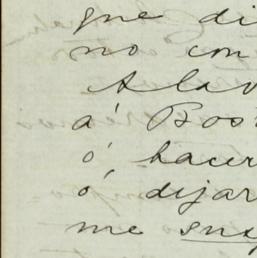 que di
no con
Alav
á Bos
ó hacer
ó dijar
me sus